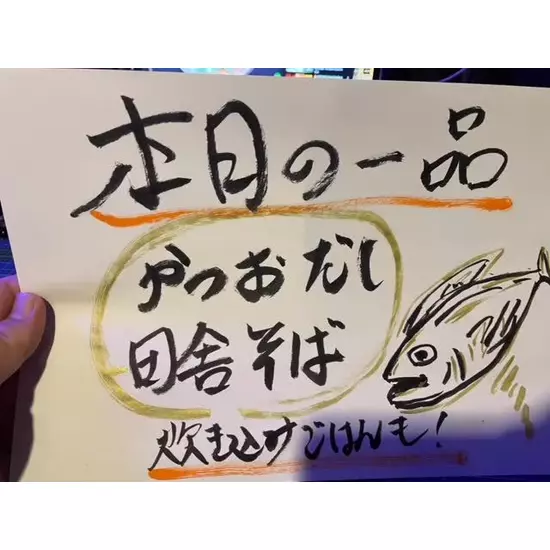 本日の一品
かつおだし
田舎そば
炊き込みごはんも!